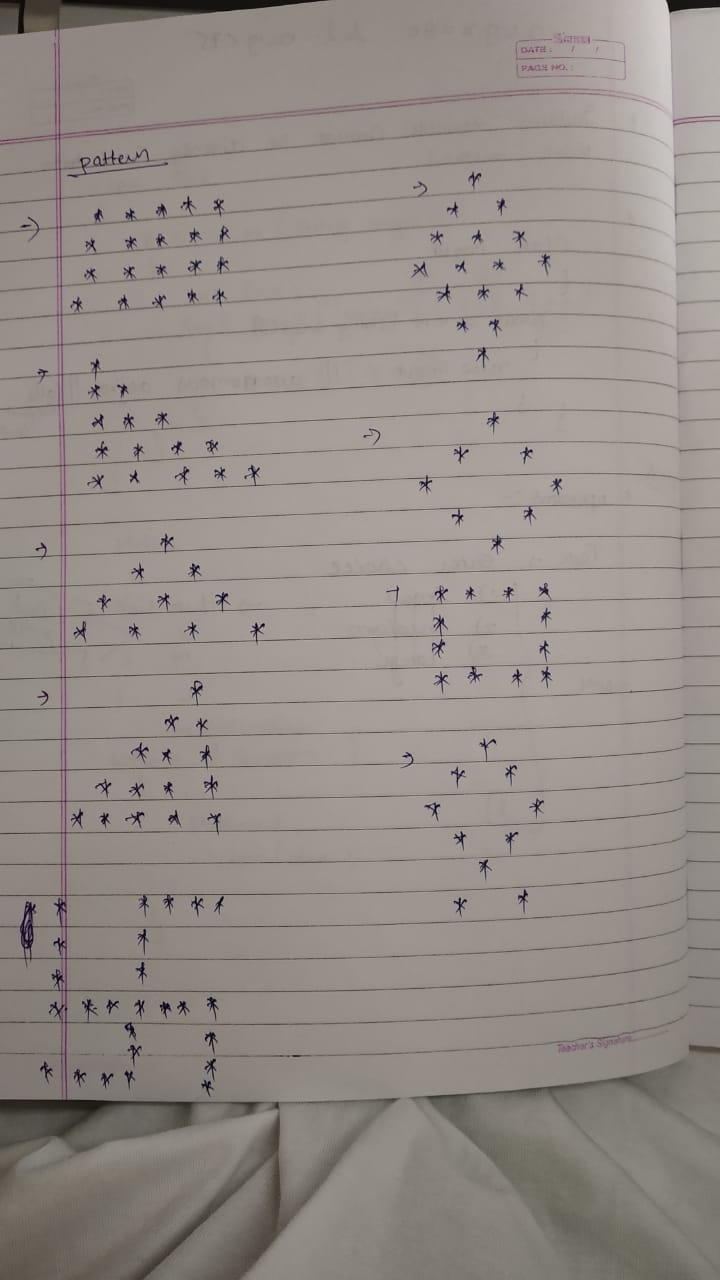 DATE: / /
PAGE NO.:
pattern
→ * * * * *
* * * * *
* * * * *
* * * * *
→ *
* *
* * *
* * * *
* * * * *
→ *
* *
* * *
* * * *
→ *
* *
* * *
* * * *
* * * * *
* * * * *
* *
* *
* * * * * * *
* *
* *
* * * * *
→ *
* *
* * *
* * * *
* * *
* *
*
→ *
* *
* *
* *
*
→ * * * *
* *
* *
* * * *
→ *
* *
* *
* *
*
* *
Teacher's Signature